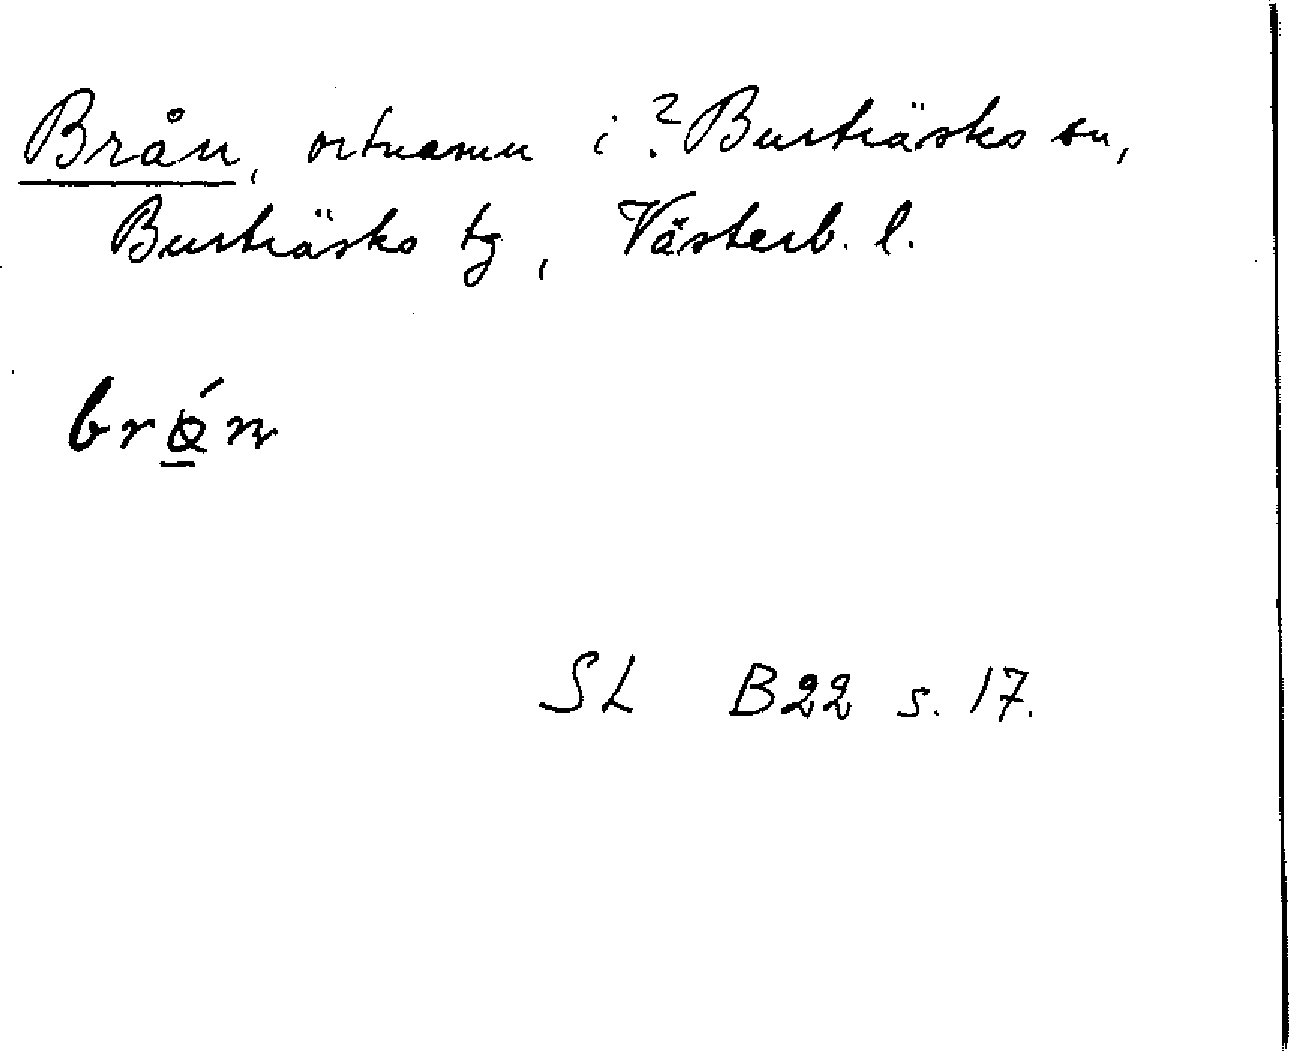 Brån, ortnamn i ? Burträsks sn,
Burträsks tg, Västerb. l.
brǫ́n
SL B22 s. 17.